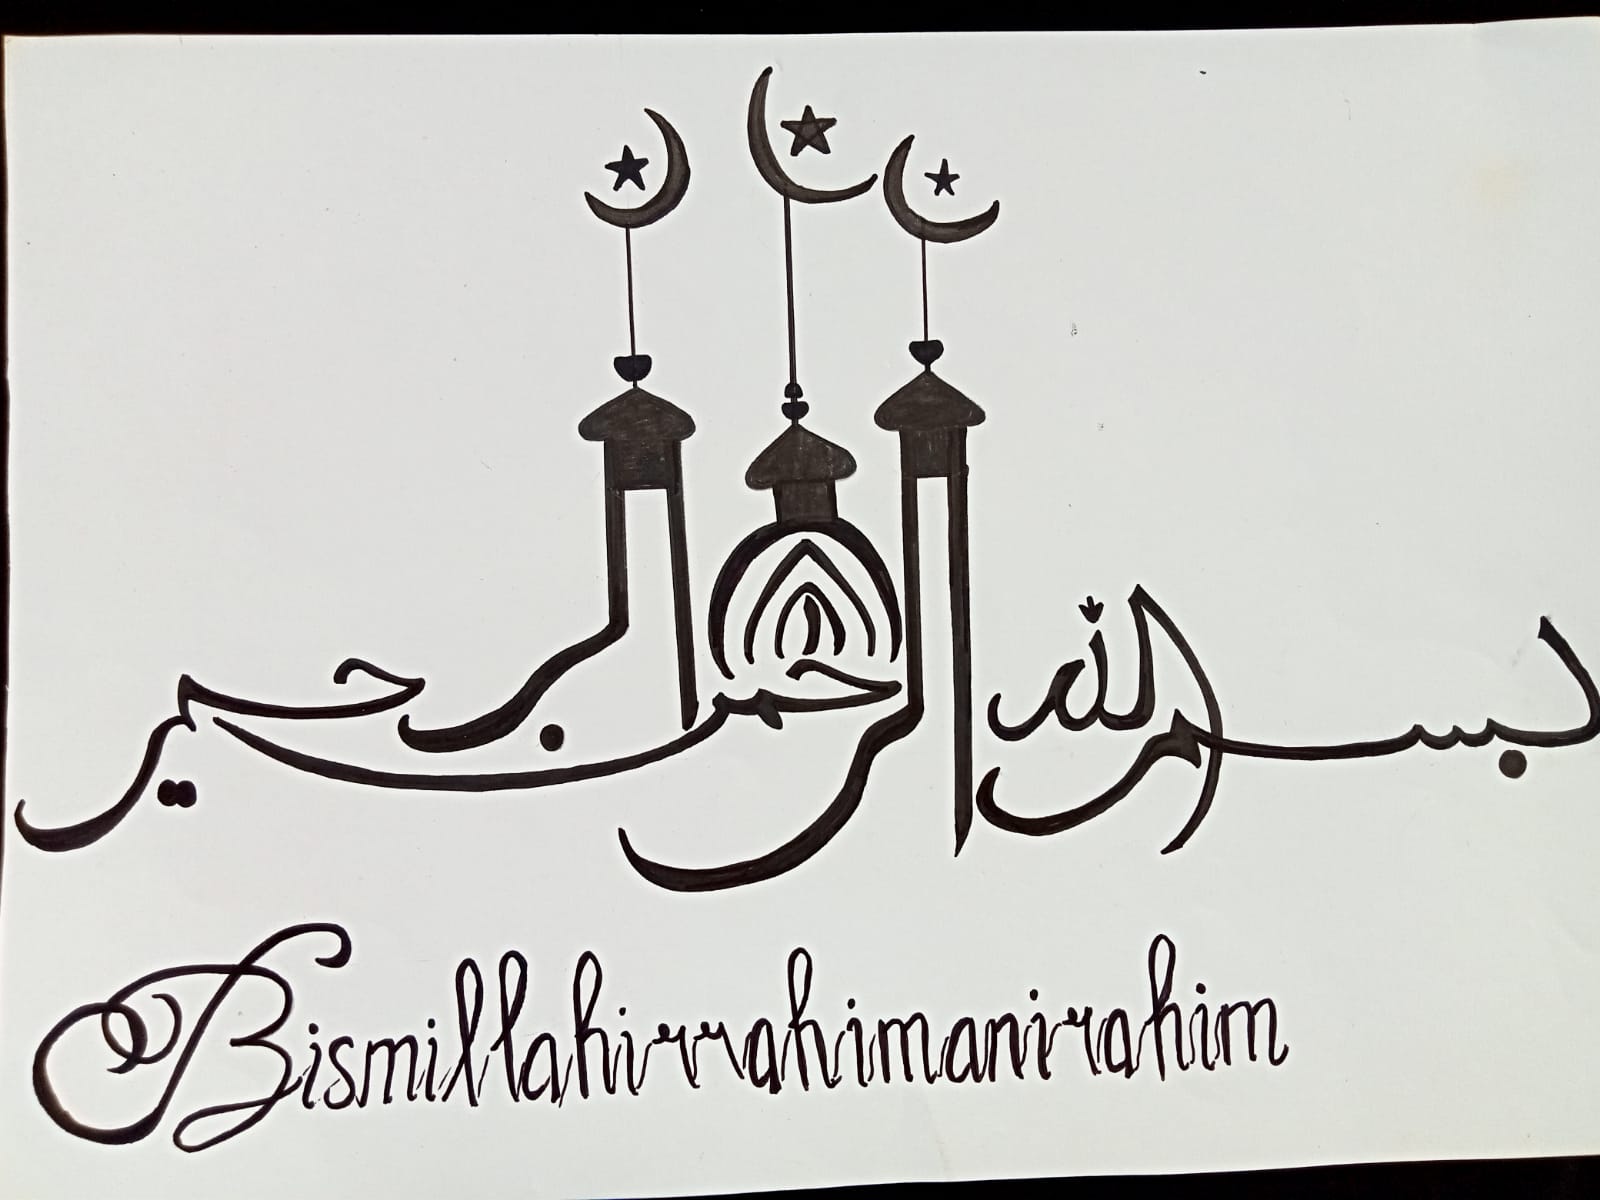 بسم الله الرحمن الرحيم
Bismillahirrahimanirahim